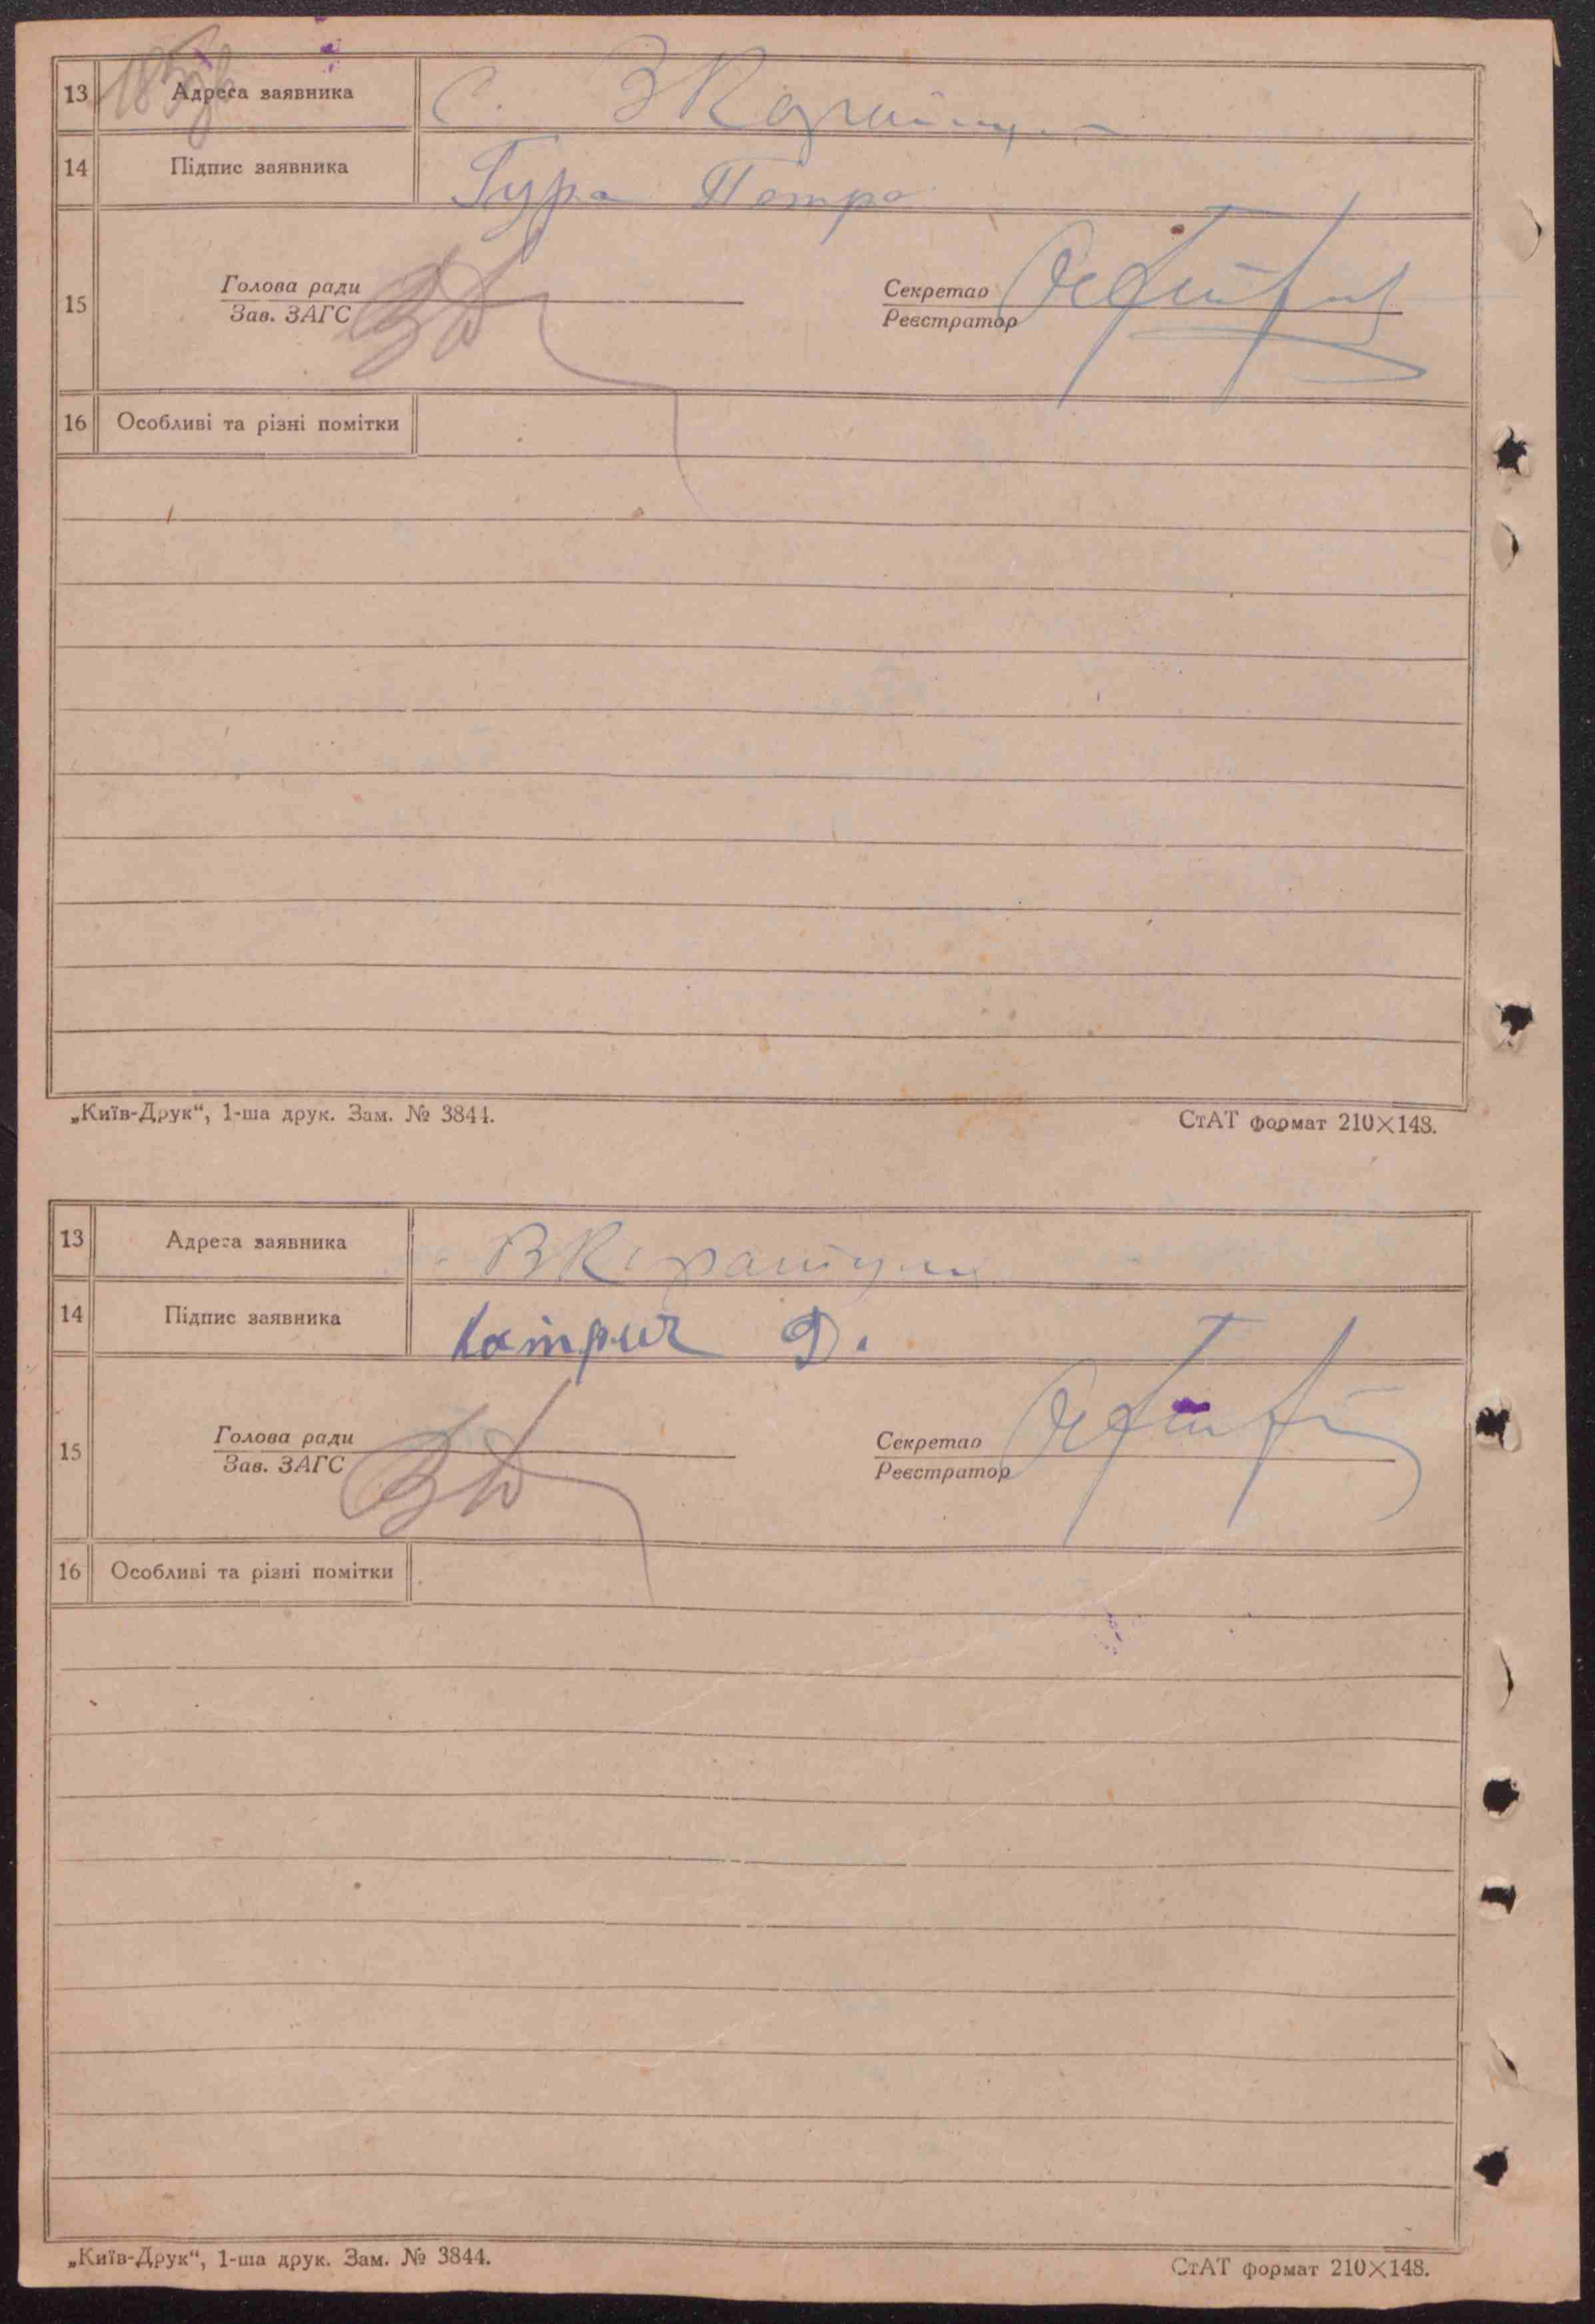 13 Адреса заявника с.
14 Підпис заявника Гура Петро
15 Голова ради Секретар
Зав. ЗАГС Реєстратор
16 Особливі та різні помітки
„Київ-Друк“, 1-ша друк. Зам. № 3844. СтАТ формат 210×148.
13 Адреса заявника
14 Підпис заявника Д.
15 Голова ради Секретар
Зав. ЗАГС Реєстратор
16 Особливі та різні помітки
„Київ-Друк“, 1-ша друк. Зам. № 3844. СтАТ формат 210×148.